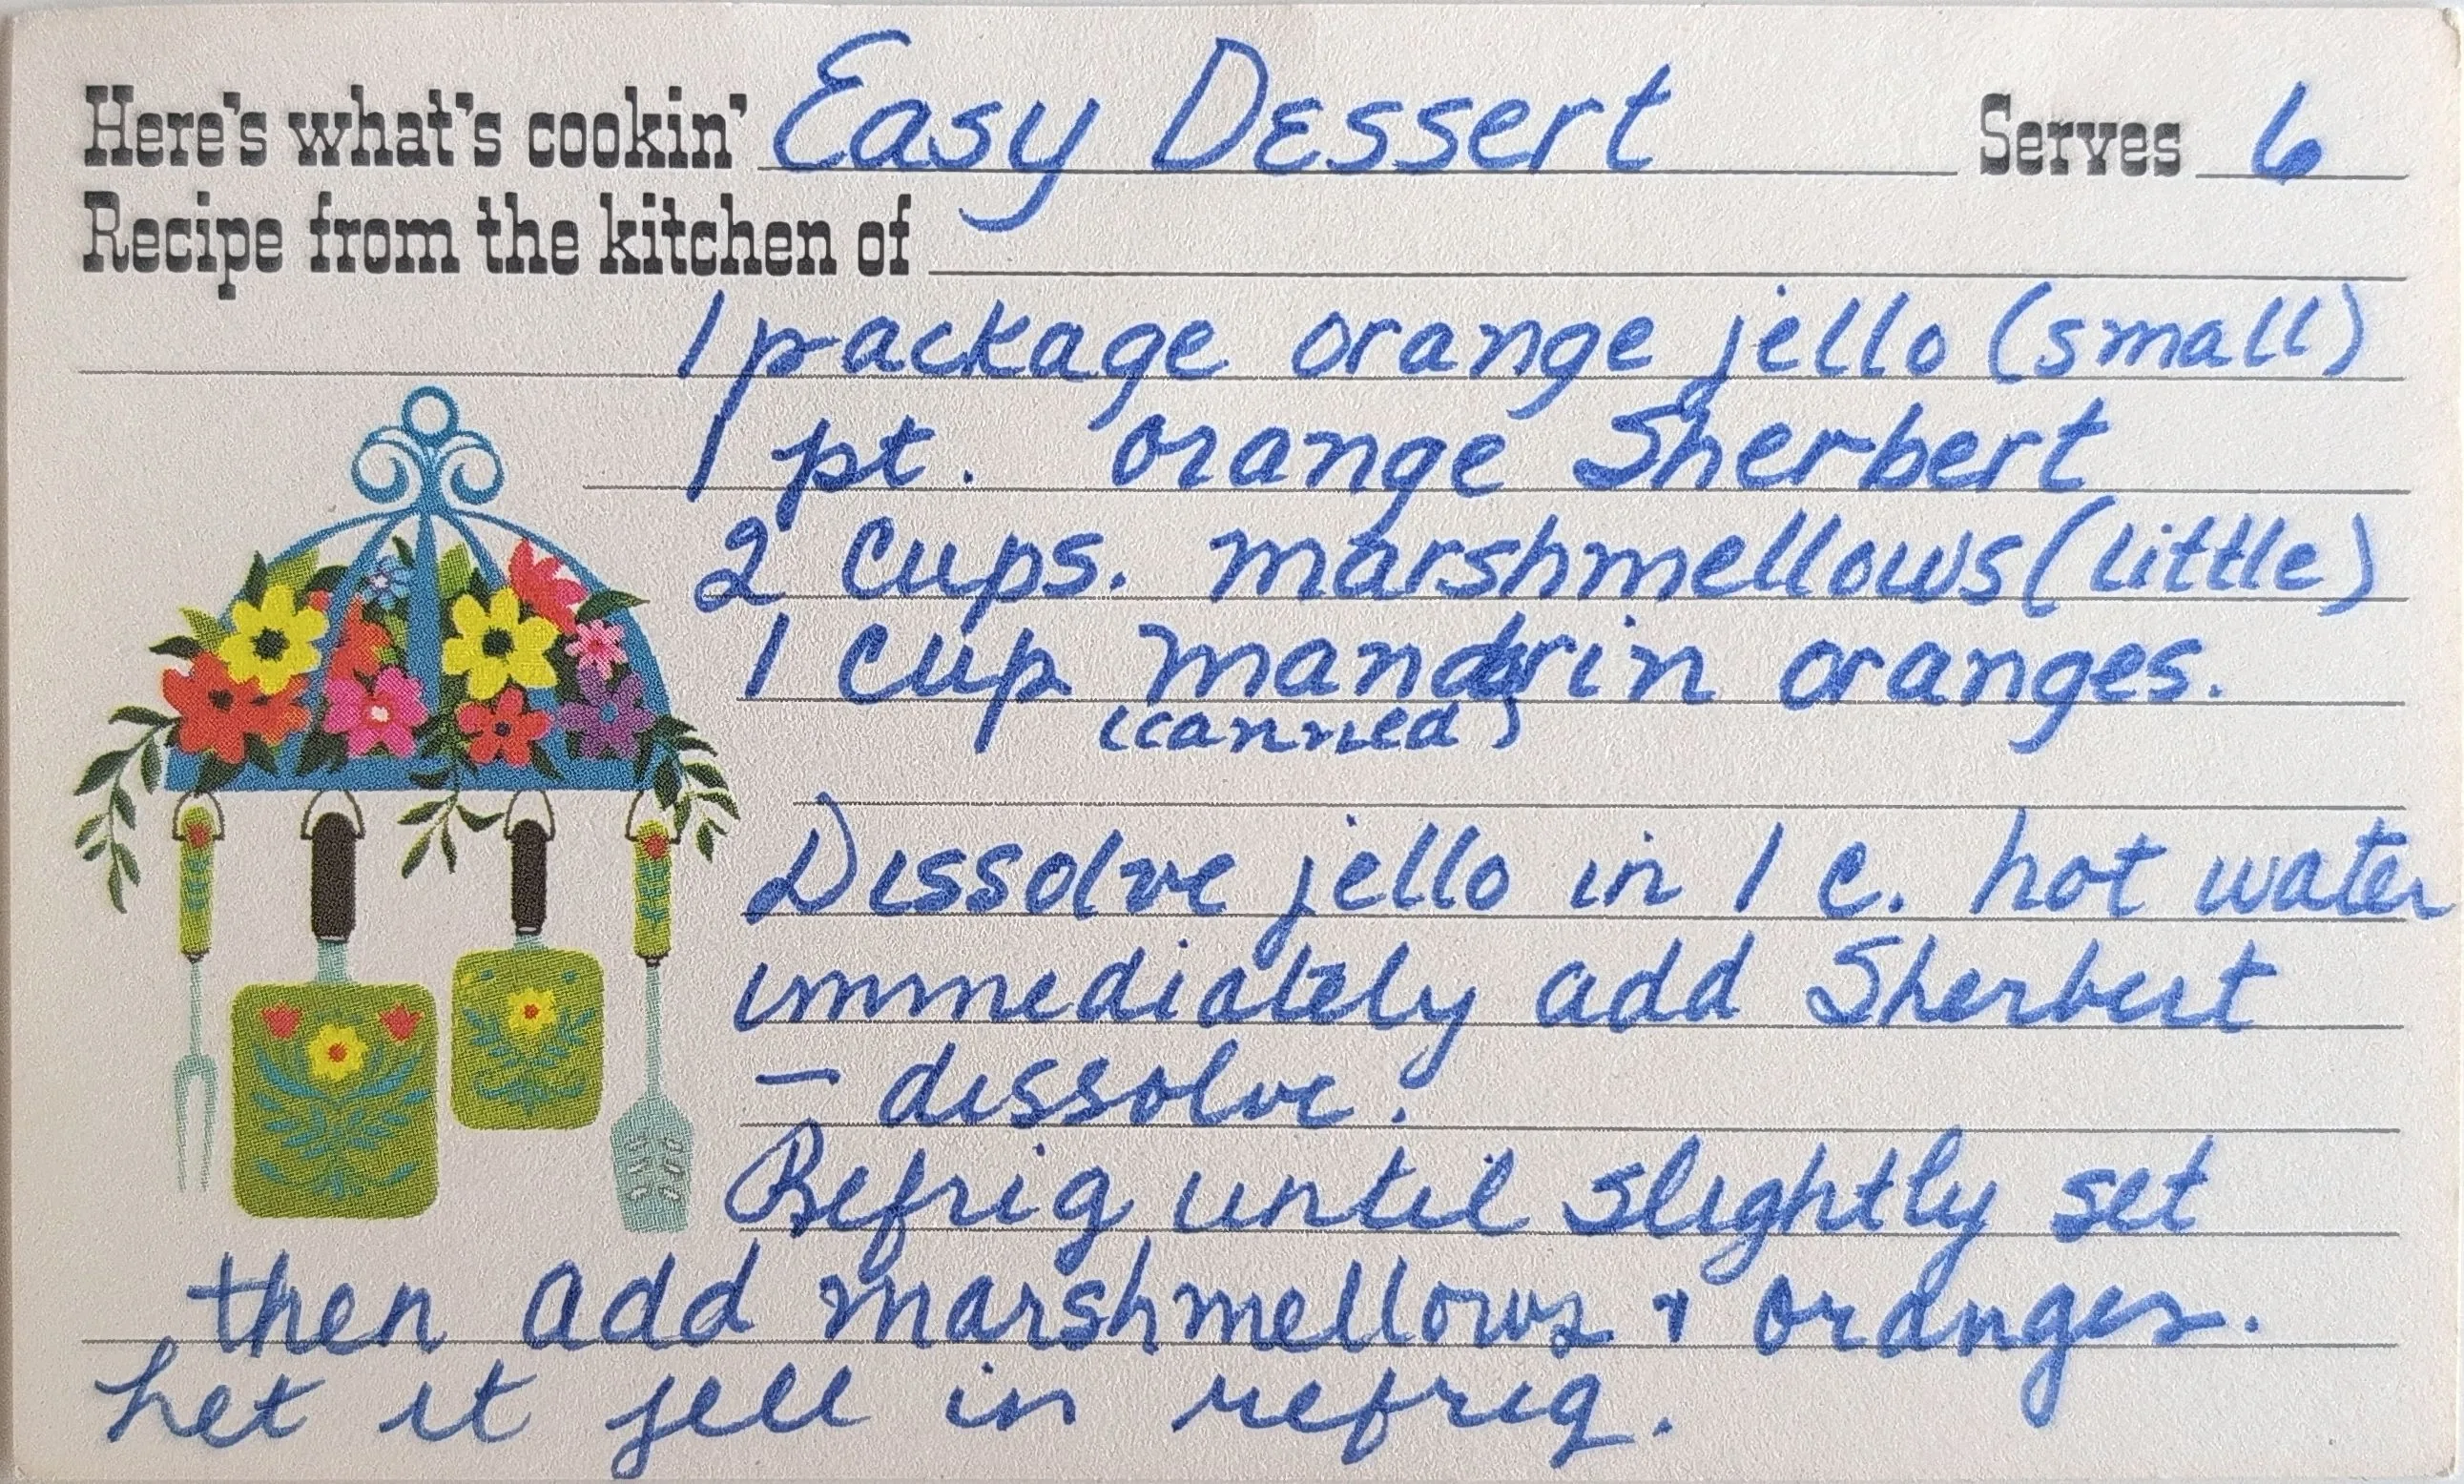 Here's what's cookin' Easy Dessert Serves 6
Recipe from the kitchen of
1 package orange jello (small)
1 pt. orange Sherbert
2 Cups. marshmellows (little)
1 Cup mandrin oranges.
(canned)
Dissolve jello in 1 c. hot water
immediately add Sherbert
– dissolve.
Refrig until slightly set
then add marshmellows & oranges.
Let it jell in refrig.